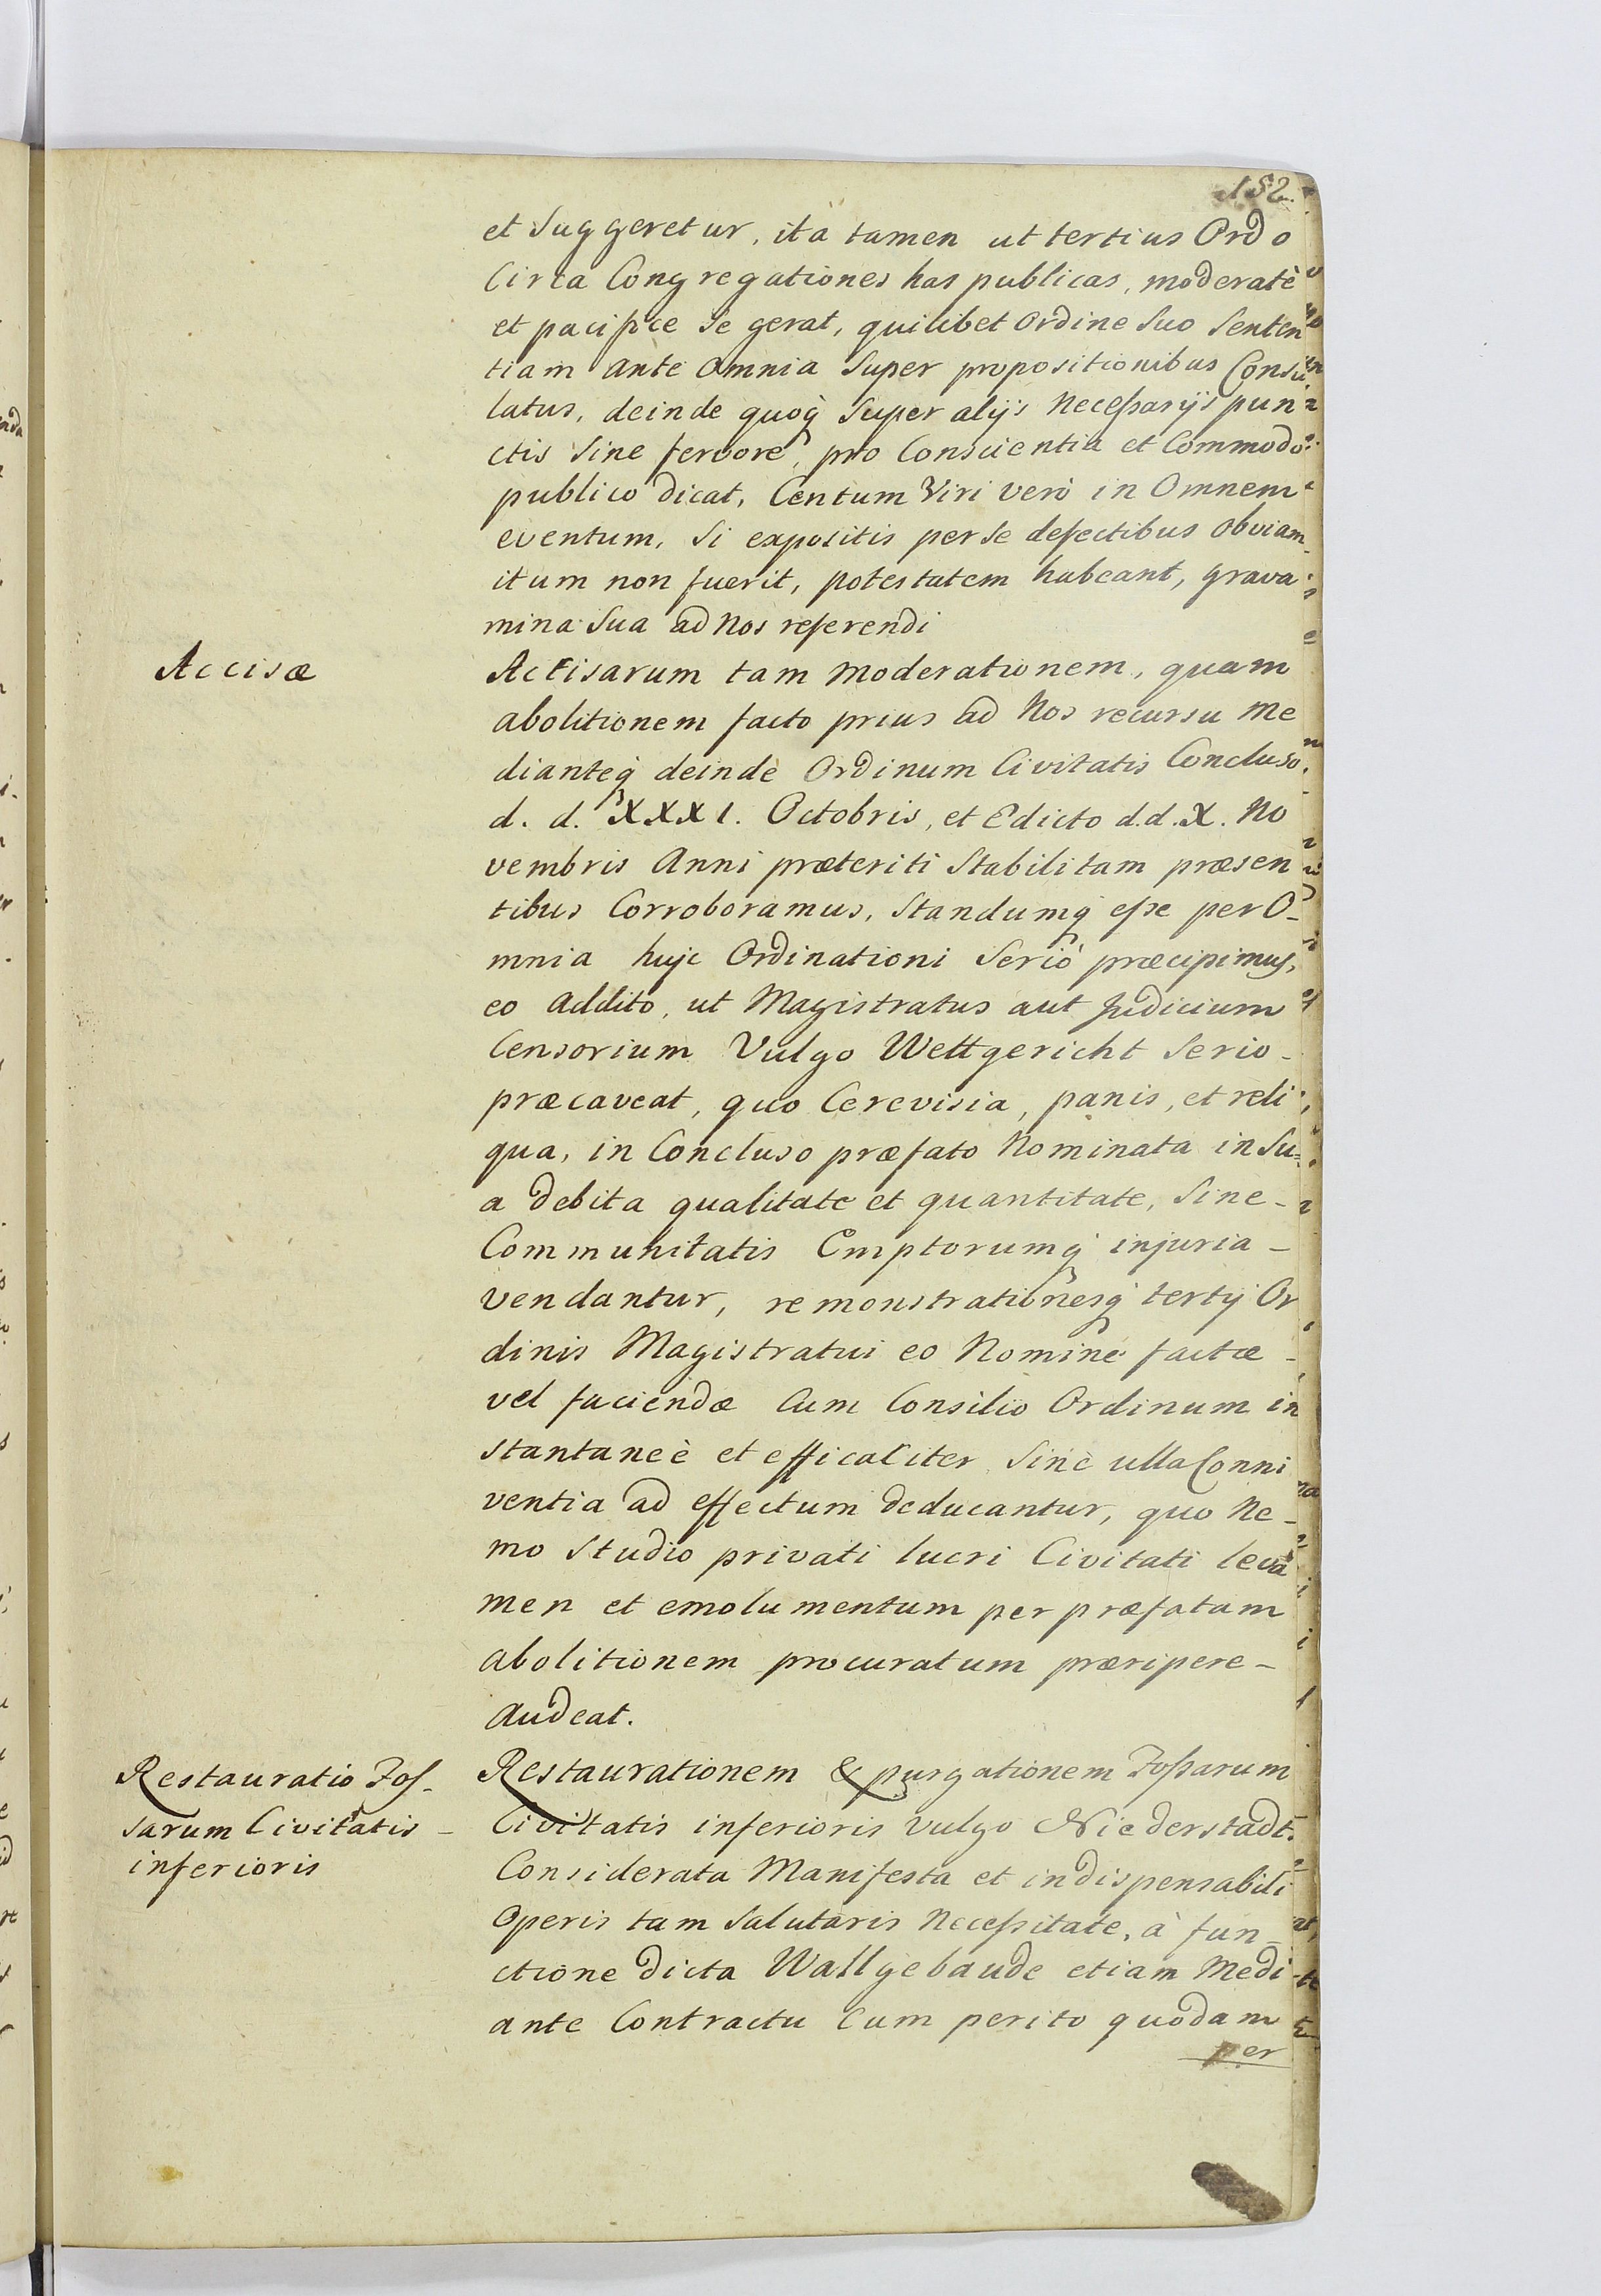 152.
et suggeretur, ità tamen ut tertius Ordo
Circa Congregationes has publicas, moderatè
et pacifice se gerat, quilibet Ordine suo senten
tiam ante omnia super propositionibus Consu
latus, deinde quoq super alijs necessarijs pun
ctis sine fervore, pro Conscientia et Commodo
publico dicat, Centum Viri verò in Omnem
eventum, si expositis per se defectibus obviam
itum non fuerit, potestatem habeant, grava
mina sua ad nos referendi
Accisæ
Accisarum tam moderationem, quam
abolitionem facto prius ad Nos recursu me
dianteq deinde Ordinum Civitatis Concluso
d. d. XXXI. Octobris, et Edicto d. d. X. No
vembris Anni præteriti stabilitam præsen
tibus Corroboramus, standumq esse per O-
mnia huic Ordinationi seriò præcipimus,
eo addito, ut Magistratus aut Judicium
Censorium Vulgo Wettgericht serio-
præcaveat, quo Cerevisia, panis, et reli
qua, in Concluso præfato Nominata in su-
a debita qualitate et quantitate, sine-
Communitatis Emptorumq injuria-
vendantur, remonstrationesq tertij Or
dinis Magistratui eo Nomine factæ-
vel faciendæ Cum Consilio Ordinum in
stantaneè et efficaciter sine ulla Conni
ventia ad effectum deducantur, quo Ne-
mo studio privati lucri Civitati leva
men et emolumentum per præfatam
abolitionem procuratum præripere-
audeat.
Restauratio Fos-
sarum Civitatis-
inferioris
Restaurationem & purgationem Fossarum
Civitatis inferioris vulgo Niederstadt
Considerata Manifesta et indispensabili
Operis tam salutaris necessitate, à fun-
ctione dicta Wallgebaude etiam Medi
ante Contractu Cum perito quodam
per